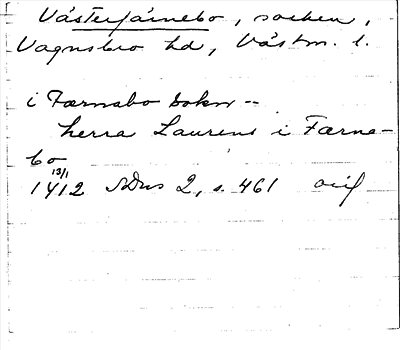 Västerfärnebo, socken,
Vagnsbro hd, Västm. l.
i Færnabo sokn --
herra Laurens i Færna-
bo
13/1
1412 SDns 2, s. 461 avs